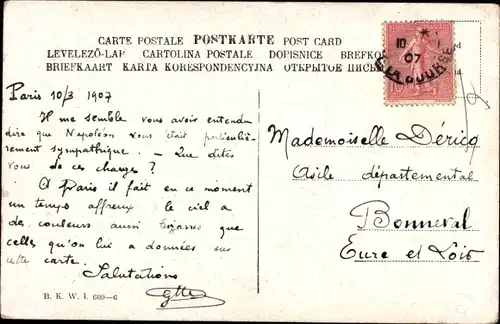 CARTE POSTALE POSTKARTE POST CARD
LEVELEZŐ-LAP CARTOLINA POSTALE DOPISNICE BREFKO
BRIEFKAART KARTA KORESPONDENCYJNA ОТКРЫТОЕ ПИСЬ
10
07
10
Paris 10/3 1907
Il me semble vous avoir entendu
dire que Napoléon vous était particuliè-
rement sympathique. - Que dites
vous de ces charges ?
A Paris il fait en ce moment
un temps affreux le ciel a
des couleurs aussi que
celles qu'on lui a données sur
cette carte.
Salutations
Mademoiselle Déricq
Asile départemental
Bonneval
Eure et Loir
B. K. W. I. 609-6